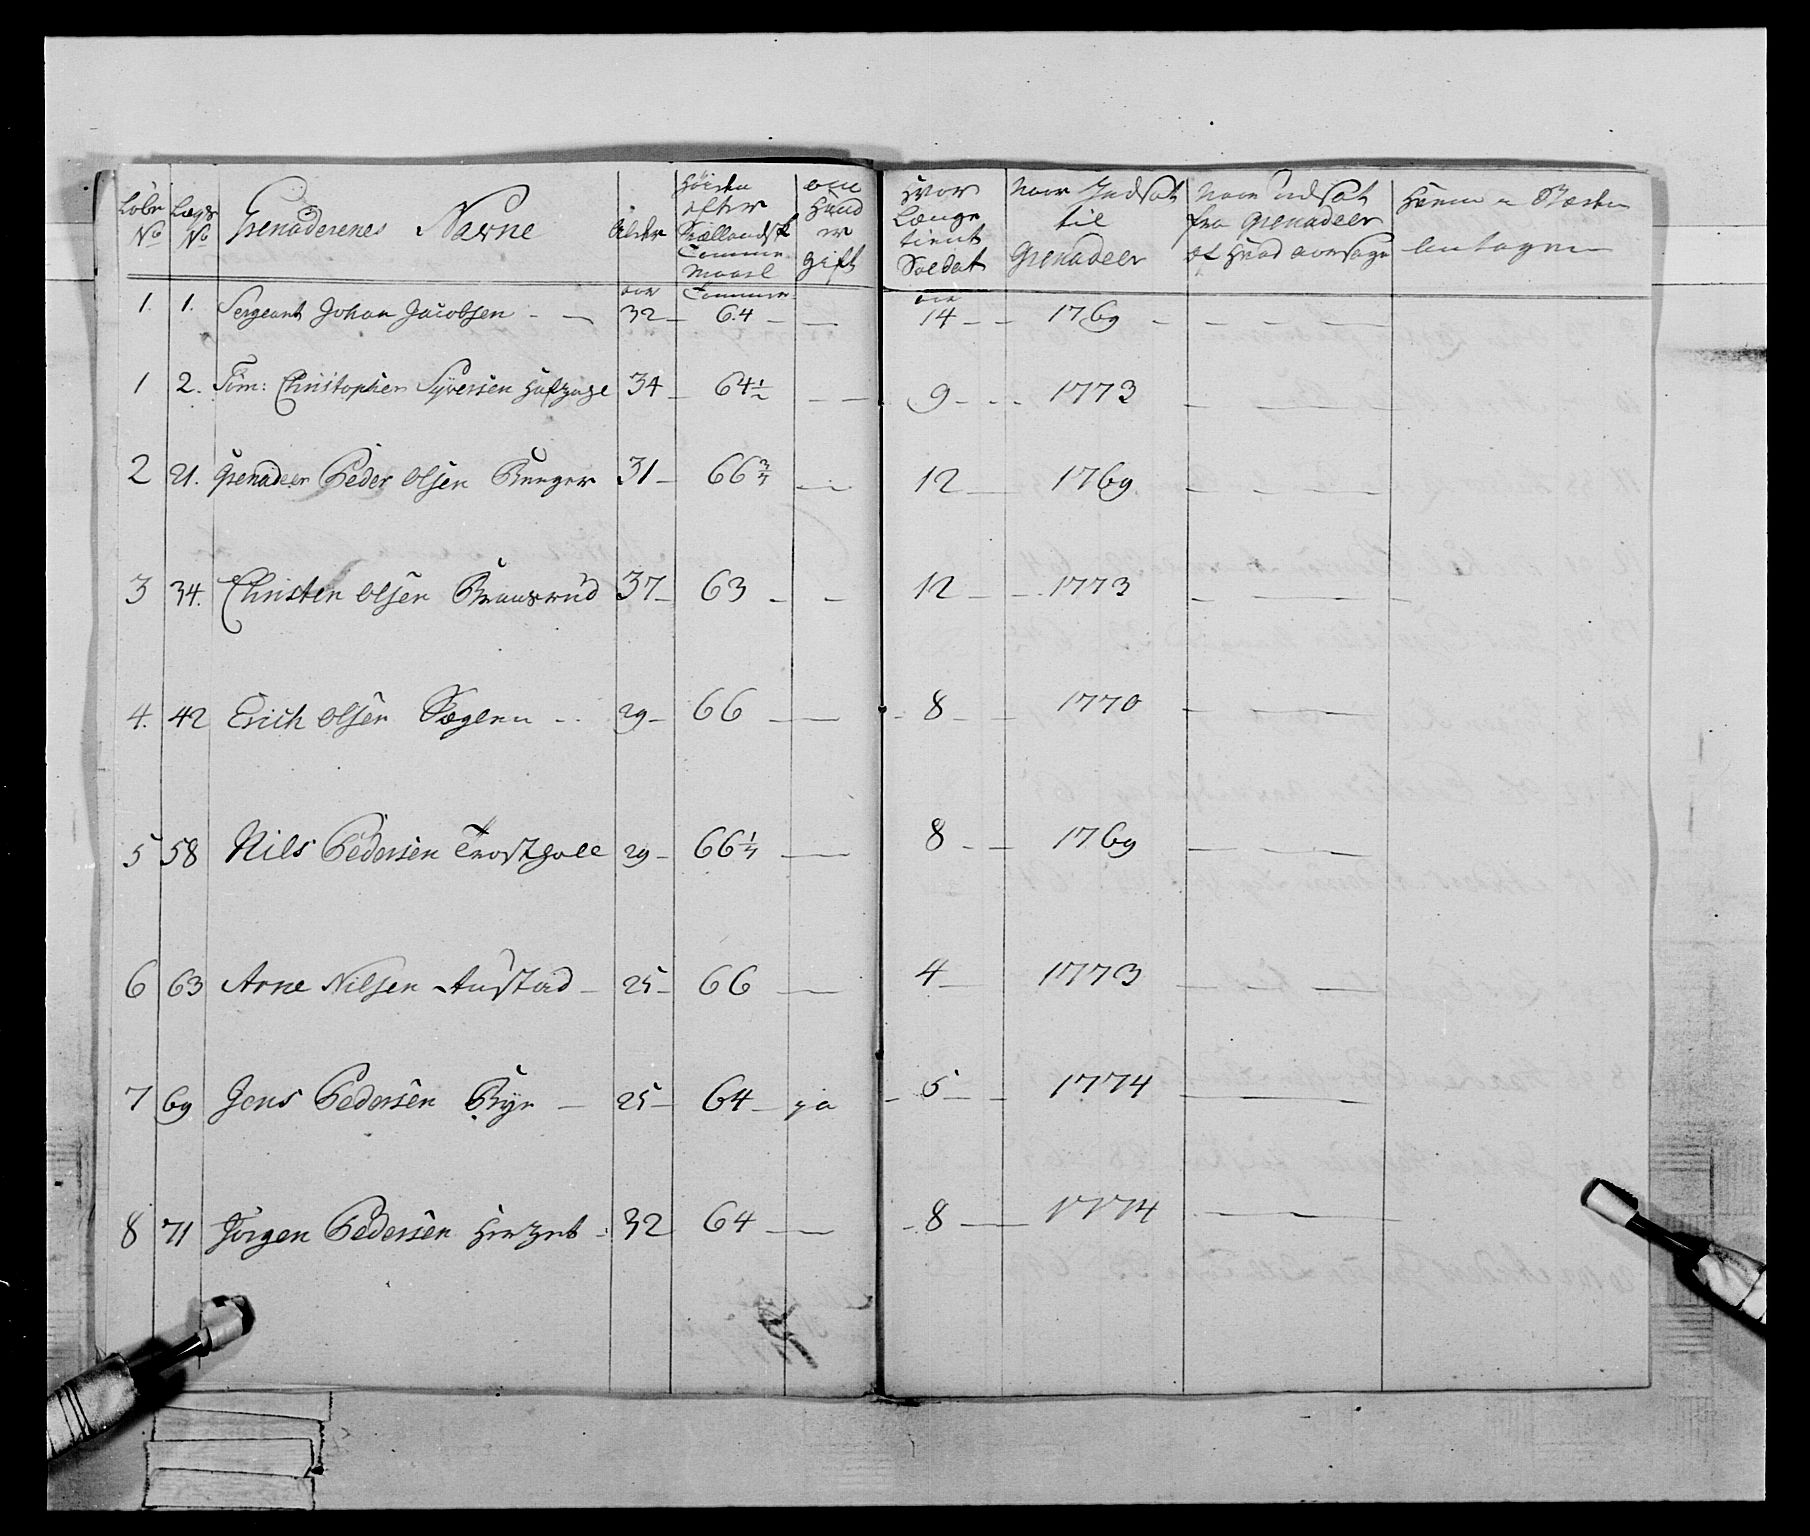 Løbe No
Lægs No
Grenaderenes Navne
Alder
Høiden efter Siællandsk Tomme Maael
om Hand er gift
Hvor Længe tient Soldat
Naar Indsat til Grenadeer
Naar udsat fra Grenadeer af Hvad aarsage
Hvem i Stæden antagen
aar Tommer aar
1. 1. Sergeant Johan Jacobsen - — 32 — 64 — — 14 - - 1769 - - - -
1 2. Tim: Christopher Syversen 34 — 64½ — — 9 - - - 1773 — — —
2 21. Grenadeer Peder Olsen Runger 31 — 66¾ — 12 — 1769 — — —
3 34. Christen Olsen 37 — 63 - - 12 - - 1773 — — —
4. 42 Erich Olsen - - 29 — 66 — — - 8 — — 1770 — — —
5 58 Nils Pedersen 29 - 66¼ — 8 - — 1769 — — —
6 63 Arne Nilsen Austad — 25 — 66 — 4 — — 1773 — — —
7 69 Jens Pedersen Rye — 25 — 64 — ja - 5 — — 1774 — —
8 71 Jørgen Pedersen 32 64 — — - 8 — 1774 — —